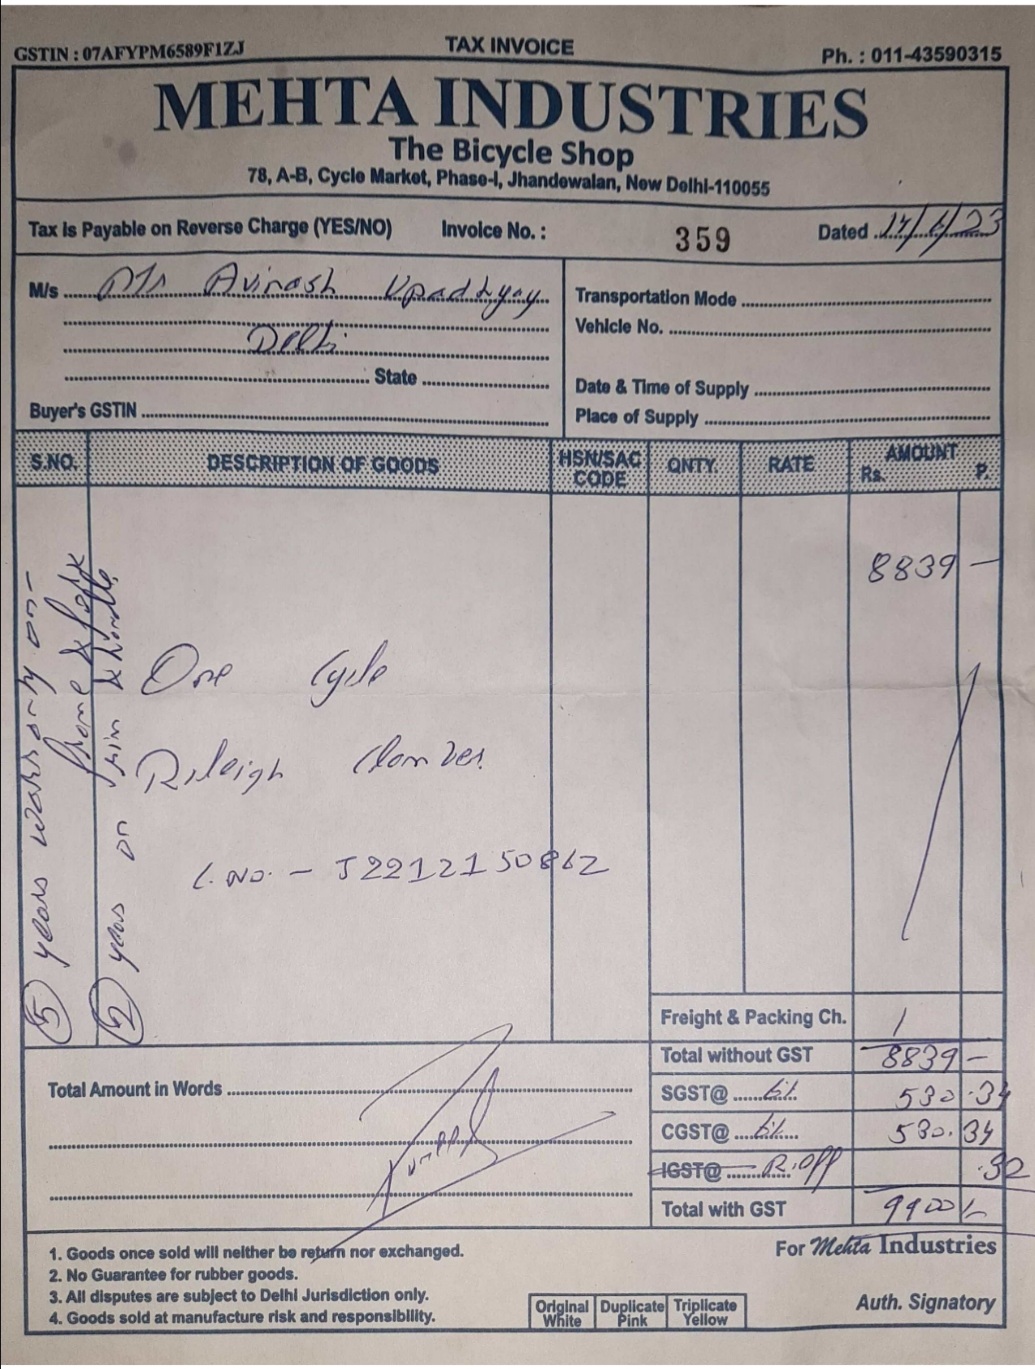 GSTIN : 07AFYPM6589F1ZJ TAX INVOICE Ph. : 011-43590315
MEHTA INDUSTRIES
The Bicycle Shop
78, A-B, Cycle Market, Phase-I, Jhandewalan, New Delhi-110055
Tax is Payable on Reverse Charge (YES/NO) Invoice No. : 359 Dated
M/s M/s Avinash Upadhyay
Delhi
State
Buyer's GSTIN
Transportation Mode
Vehicle No.
Date & Time of Supply
Place of Supply
S.NO. DESCRIPTION OF GOODS HSN/SAC CODE QNTY. RATE AMOUNT Rs. P.
8839 —
One Cycle
Raleigh
No. - J2212150862
5 years warranty on -
frame & fork
2 years on rim &
Freight & Packing Ch.
Total without GST 8839 —
SGST@ 6% 530.34
CGST@ 6% 530.34
IGST@ R.off .32
Total with GST 9900/-
Total Amount in Words
1. Goods once sold will neither be return nor exchanged.
2. No Guarantee for rubber goods.
3. All disputes are subject to Delhi Jurisdiction only.
4. Goods sold at manufacture risk and responsibility.
Original White Duplicate Pink Triplicate Yellow
For Mehta Industries
Auth. Signatory